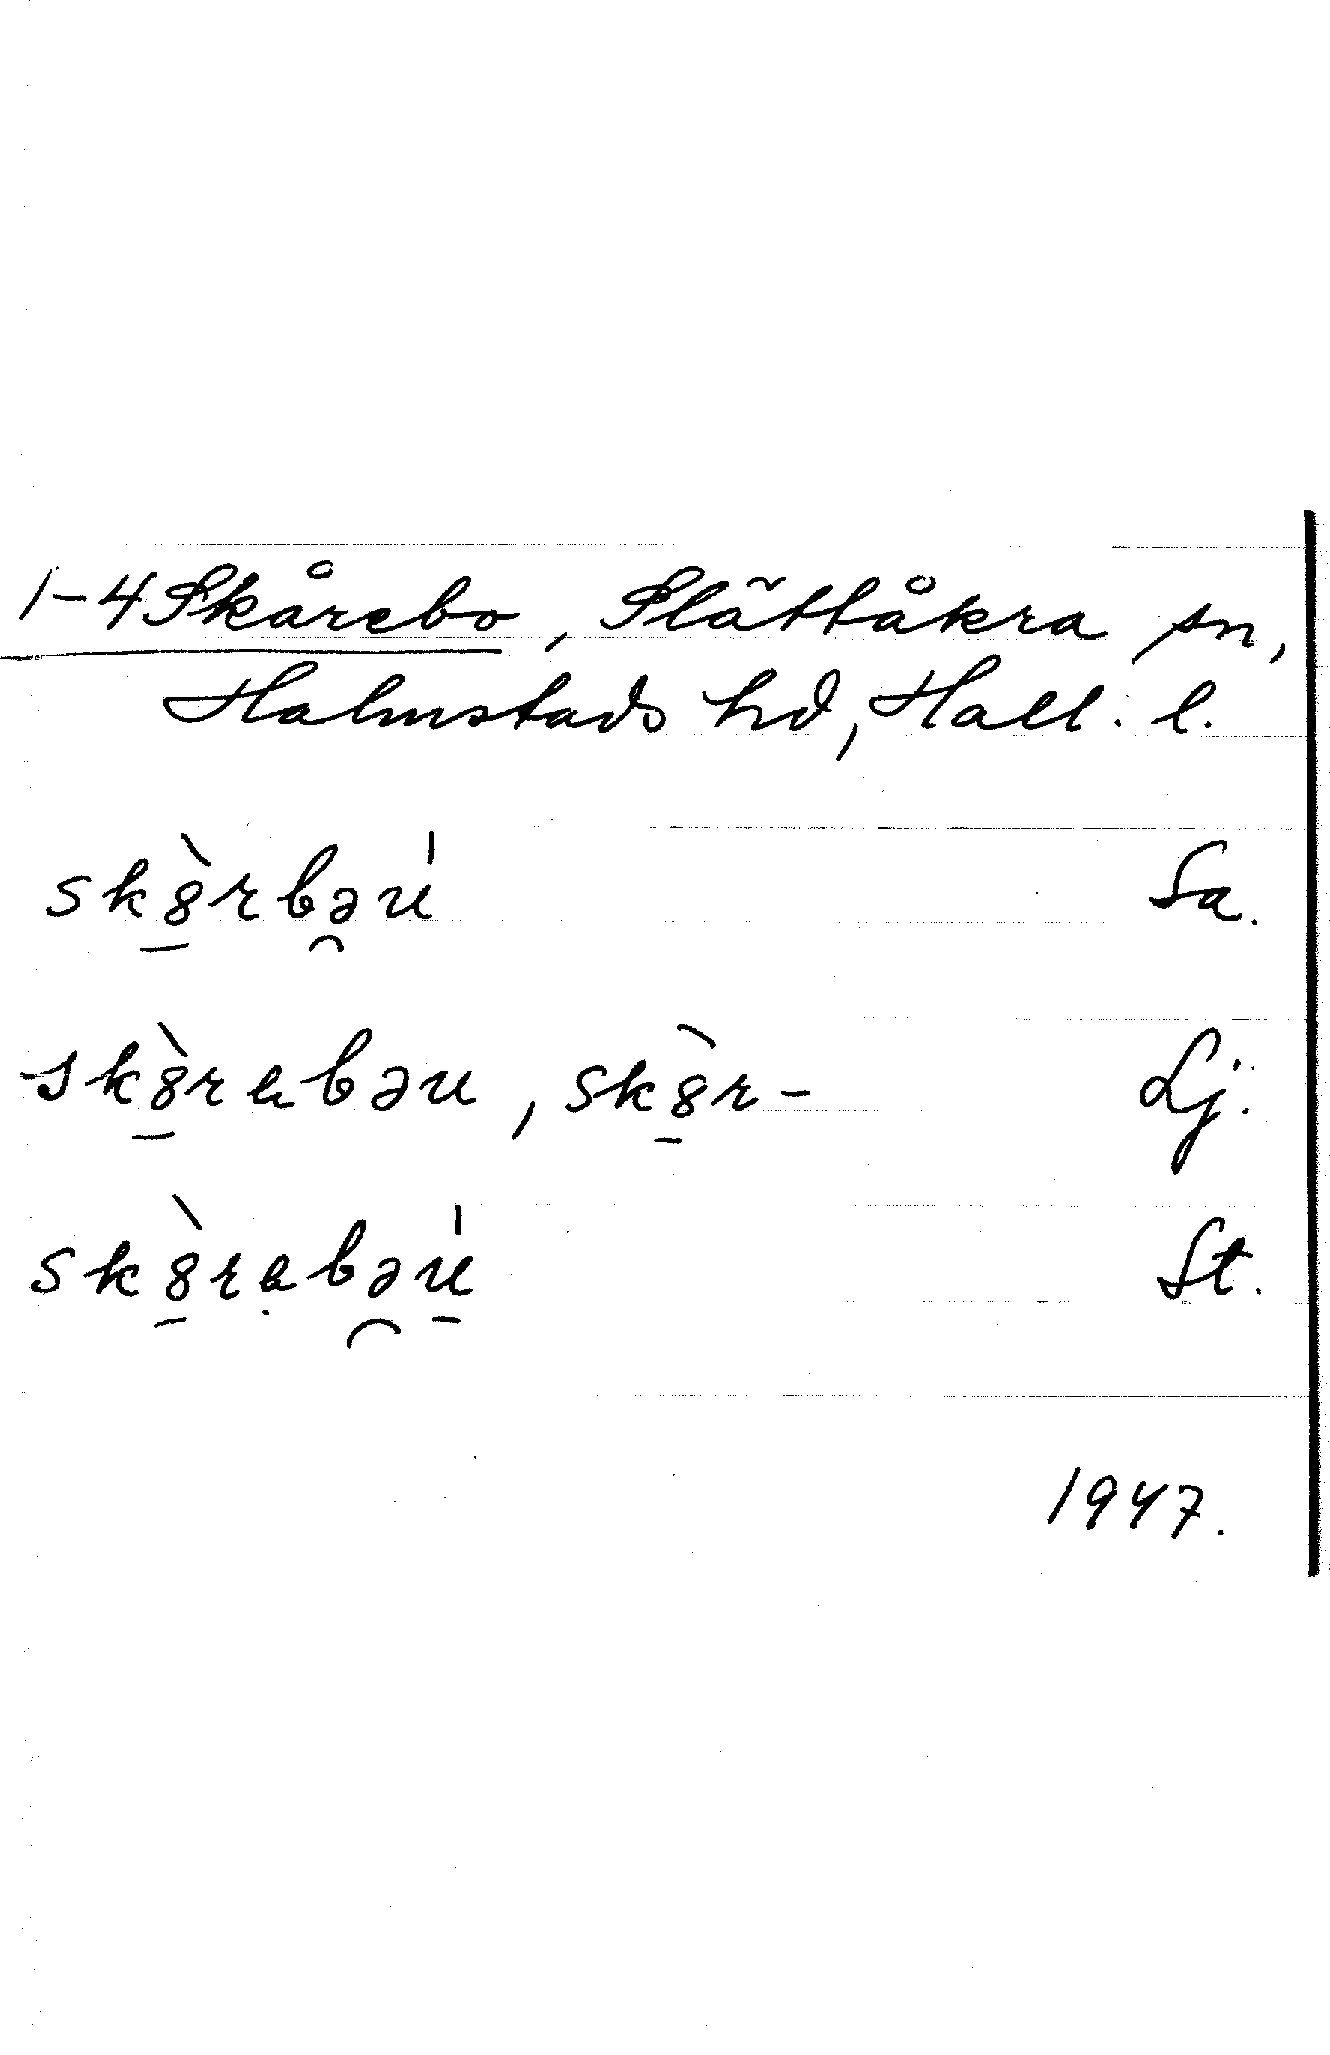 1-4 Skårebo, Slättåkra sn,
Halmstads hd, Hall. l.
sk8̱̀rbə̯u̍ Sa.
sk8̱̀rabəu, sk8̱̀r- Lj.
sk8̱̀rạbə̯u̱̍ St.
1947.